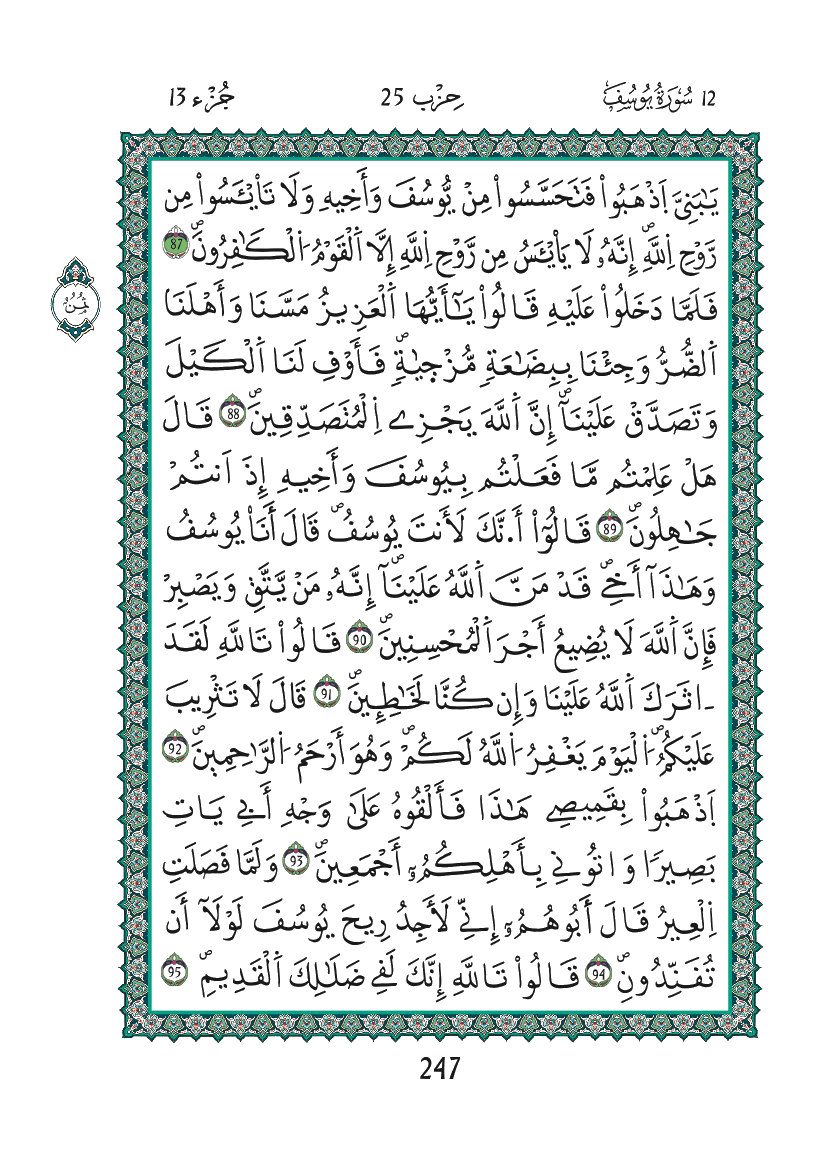 12 سُورَةُ يُوسُفَ حِزْب 25 جُزْء 13
يَٰبَنِيَّ اَ۪ذْهَبُواْ فَتَحَسَّسُواْ مِنْ يُّوسُفَ وَأَخِيهِ وَلَا تَاْيْـَٔسُواْ مِن
رَّوْحِ اِ۬للَّهِۖ إِنَّهُۥ لَا يَاْيْـَٔسُ مِن رَّوْحِ اِ۬للَّهِ إِلَّا اَ۬لْقَوْمُ اُ۬لْكَٰفِرُونَۖ 87
فَلَمَّا دَخَلُواْ عَلَيْهِ قَالُواْ يَٰٓأَيُّهَا اَ۬لْعَزِيزُ مَسَّنَا وَأَهْلَنَا
ثُمُنُ
اَ۬لضُّرُّ وَجِئْنَا بِبِضَٰعَةٖ مُّزْج۪يٰةٖۖ فَأَوْفِ لَنَا اَ۬لْكَيْلَ
وَتَصَدَّقْ عَلَيْنَآۖ إِنَّ اَ۬للَّهَ يَجْزِے اِ۬لْمُتَصَدِّقِينَۖ 88 قَالَ
هَلْ عَلِمْتُم مَّا فَعَلْتُم بِيُوسُفَ وَأَخِيهِ إِذَ اَنتُمْ
جَٰهِلُونَۖ 89 قَالُوٓاْ أَ.نَّكَ لَأَنتَ يُوسُفُۖ قَالَ أَنَا يُوسُفُ
وَهَٰذَآ أَخِےۖ قَدْ مَنَّ اَ۬للَّهُ عَلَيْنَآۖ إِنَّهُۥ مَنْ يَّتَّقِ وَيَصْبِرْ
فَإِنَّ اَ۬للَّهَ لَا يُضِيعُ أَجْرَ اَ۬لْمُحْسِنِينَۖ 90 قَالُواْ تَاللَّهِ لَقَدَ
اٰثَرَكَ اَ۬للَّهُ عَلَيْنَا وَإِن كُنَّا لَخَٰطِـِٕينَۖ 91 قَالَ لَا تَثْرِيبَ
عَلَيْكُمُ اُ۬لْيَوْمَۖ يَغْفِرُ اُ۬للَّهُ لَكُمْۖ وَهُوَ أَرْحَمُ اُ۬لرَّٰحِمِينَۖ 92
اَ۪ذْهَبُواْ بِقَمِيصِے هَٰذَا فَأَلْقُوهُ عَلَىٰ وَجْهِ أَبِے يَاتِ
بَصِيراٗ وَاتُونِے بِأَهْلِكُمُۥٓ أَجْمَعِينَۖ 93 وَلَمَّا فَصَلَتِ
اِ۬لْعِيرُ قَالَ أَبُوهُمُۥٓ إِنِّے لَأَجِدُ رِيحَ يُوسُفَ لَوْلَآ أَن
تُفَنِّدُونِۖ 94 قَالُواْ تَاللَّهِ إِنَّكَ لَفِے ضَلَٰلِكَ اَ۬لْقَدِيمِۖ 95
247